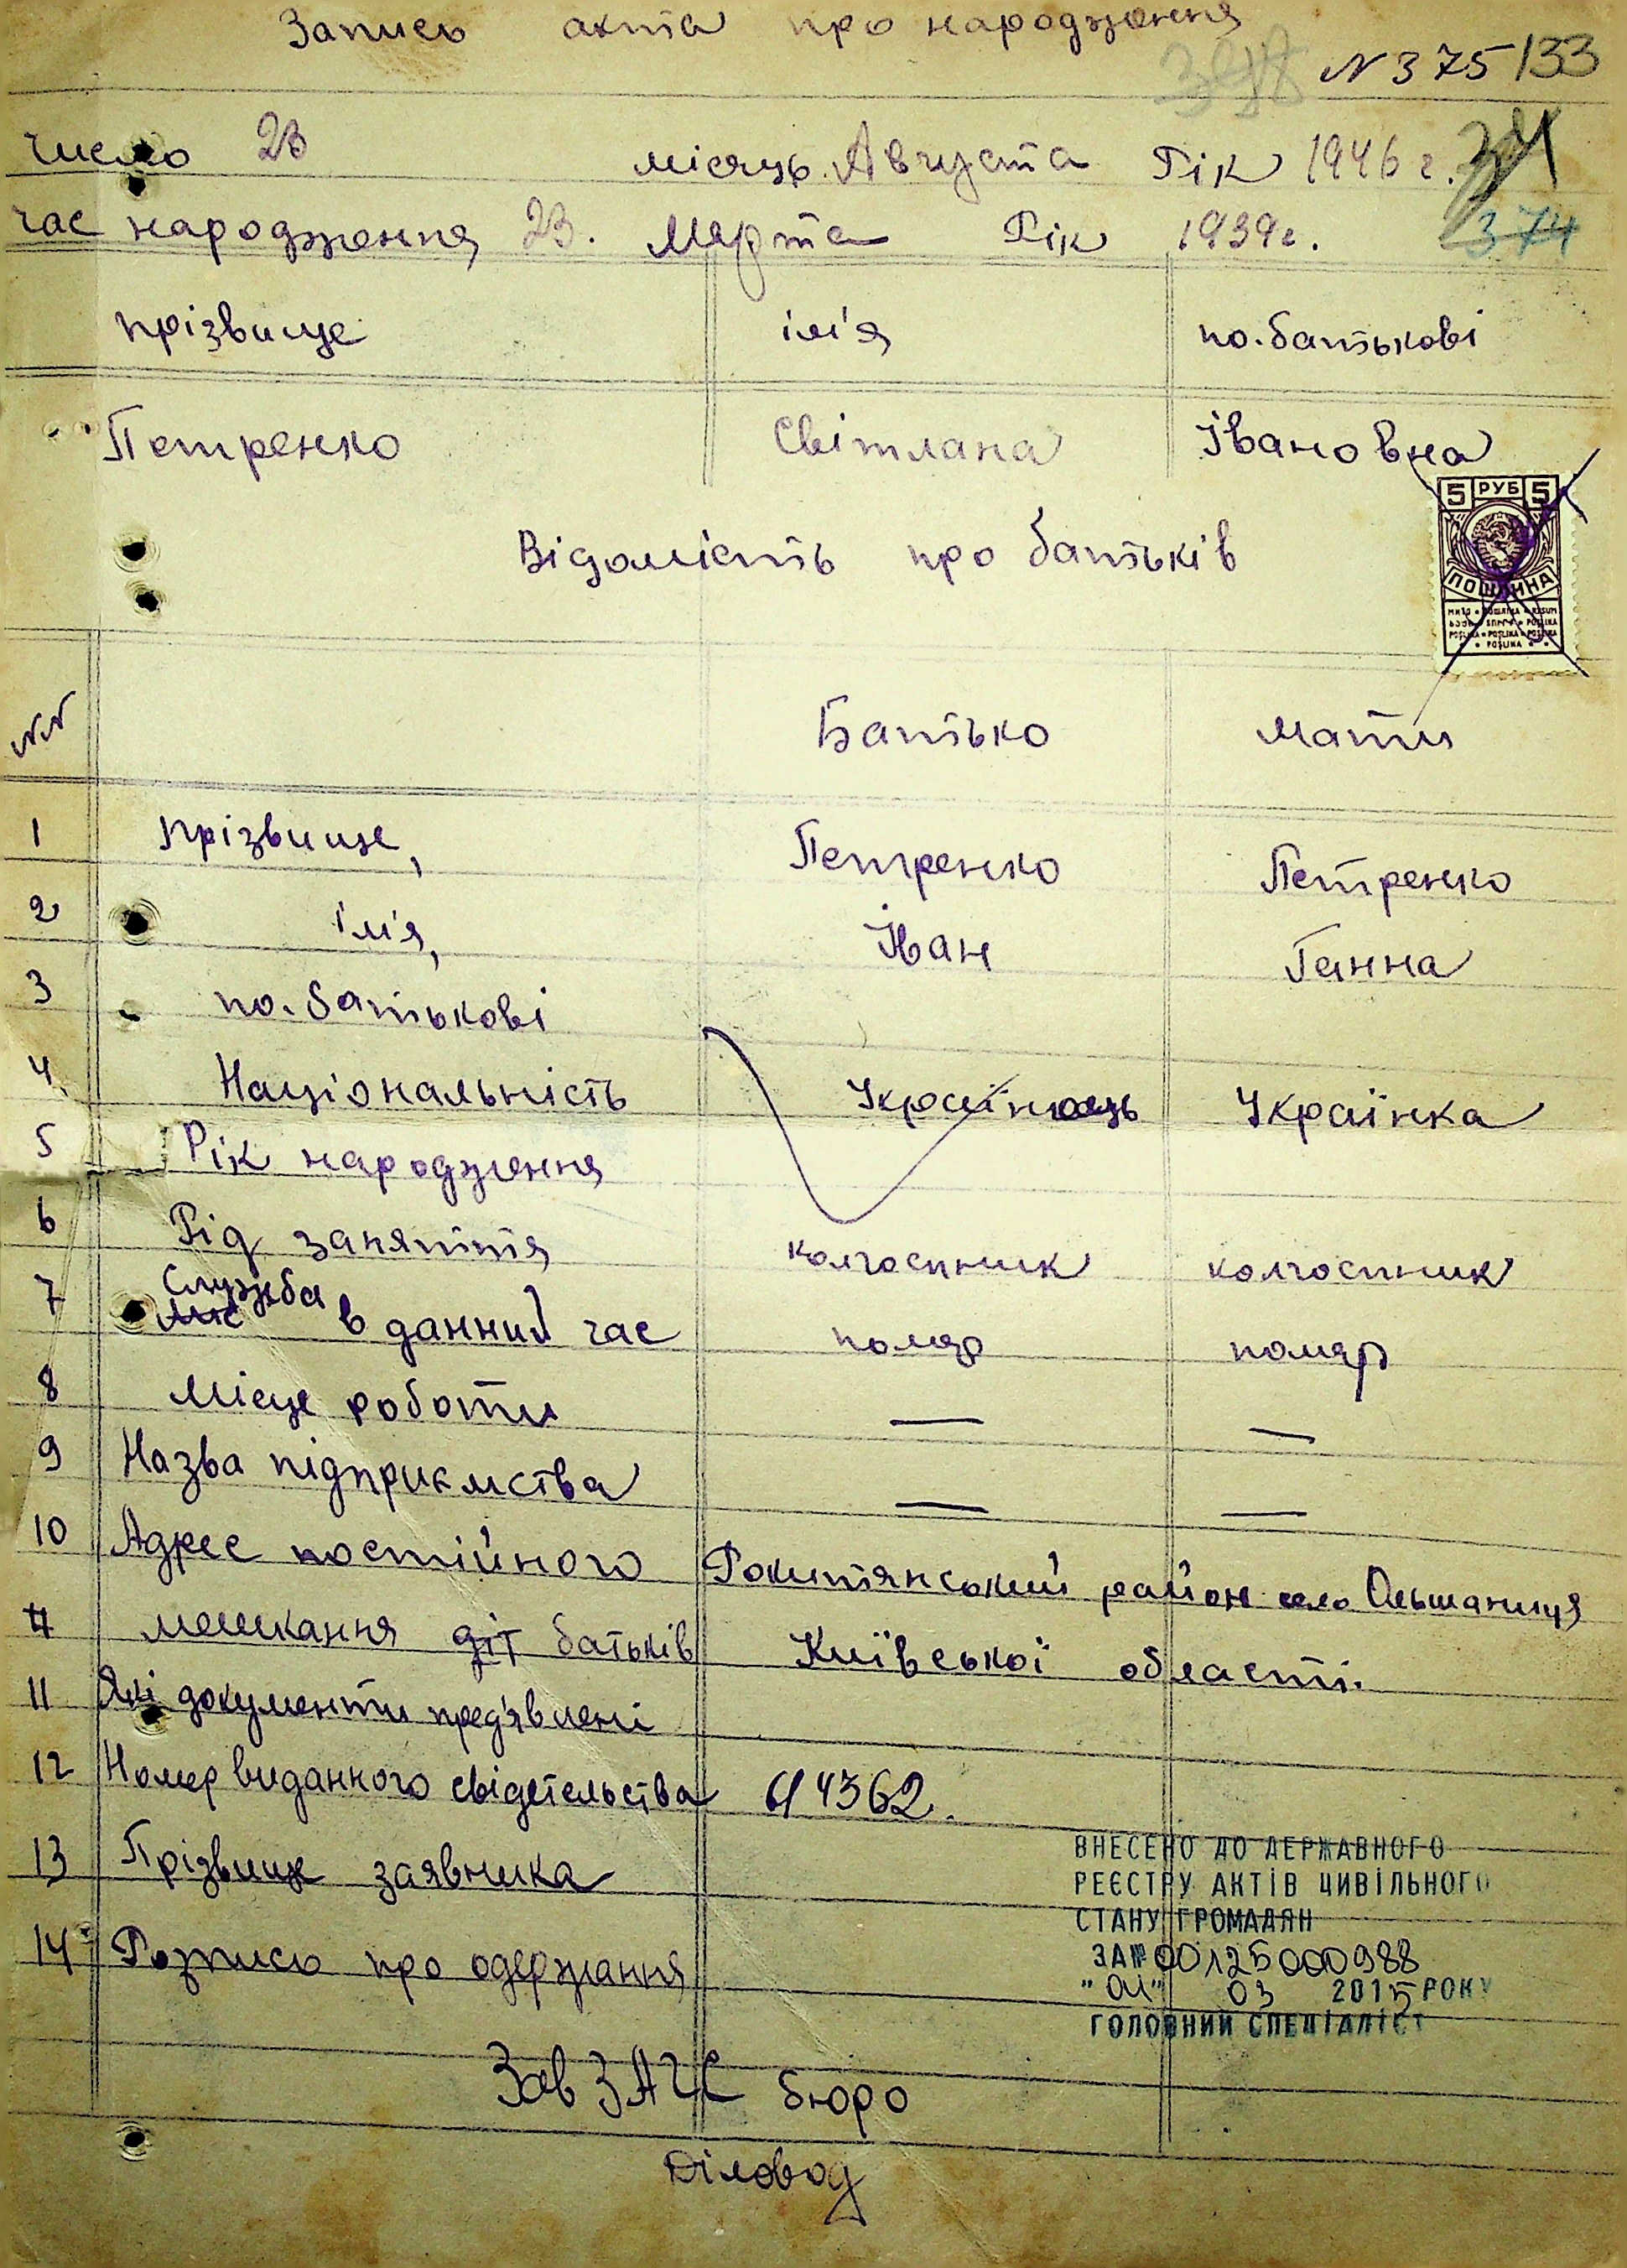 Запись акта про народження
N 375/133
число 23 місяць Августа Рік 1946 г.
374
час народження 23. Марта Рік 1939 г.
прізвище ім'я по.батькові
Петренко Світлана Івановна
5 РУБ 5
ПОШЛИНА
Відомість про батьків
NN Батько мати
1 прізвище, Петренко Петренко
2 ім'я, Іван Ганна
3 по.батькові
4 Національність Українець Українка
5 Рік народження
6 Рід заняття колгоспник колгоспник
7 Служба в данний час
8 Місце роботи — —
9 Назва підприємства — —
10 Адрес постійного Рокитянський район село Ольшаниця
мешкання діт батьків Київської області.
11 Які документи предъявлені
12 Номер виданного свідетельства 614362.
13 Прізвище заявника
14 Розписо про одержання
ВНЕСЕНО ДО ДЕРЖАВНОГО
РЕЄСТРУ АКТІВ ЦИВІЛЬНОГО
СТАНУ ГРОМАДЯН
ЗА № 00125000988
"04" 03 2015 РОКУ
ГОЛОВНИЙ СПЕЦІАЛІСТ
Зав ЗАГС бюро
Діловод